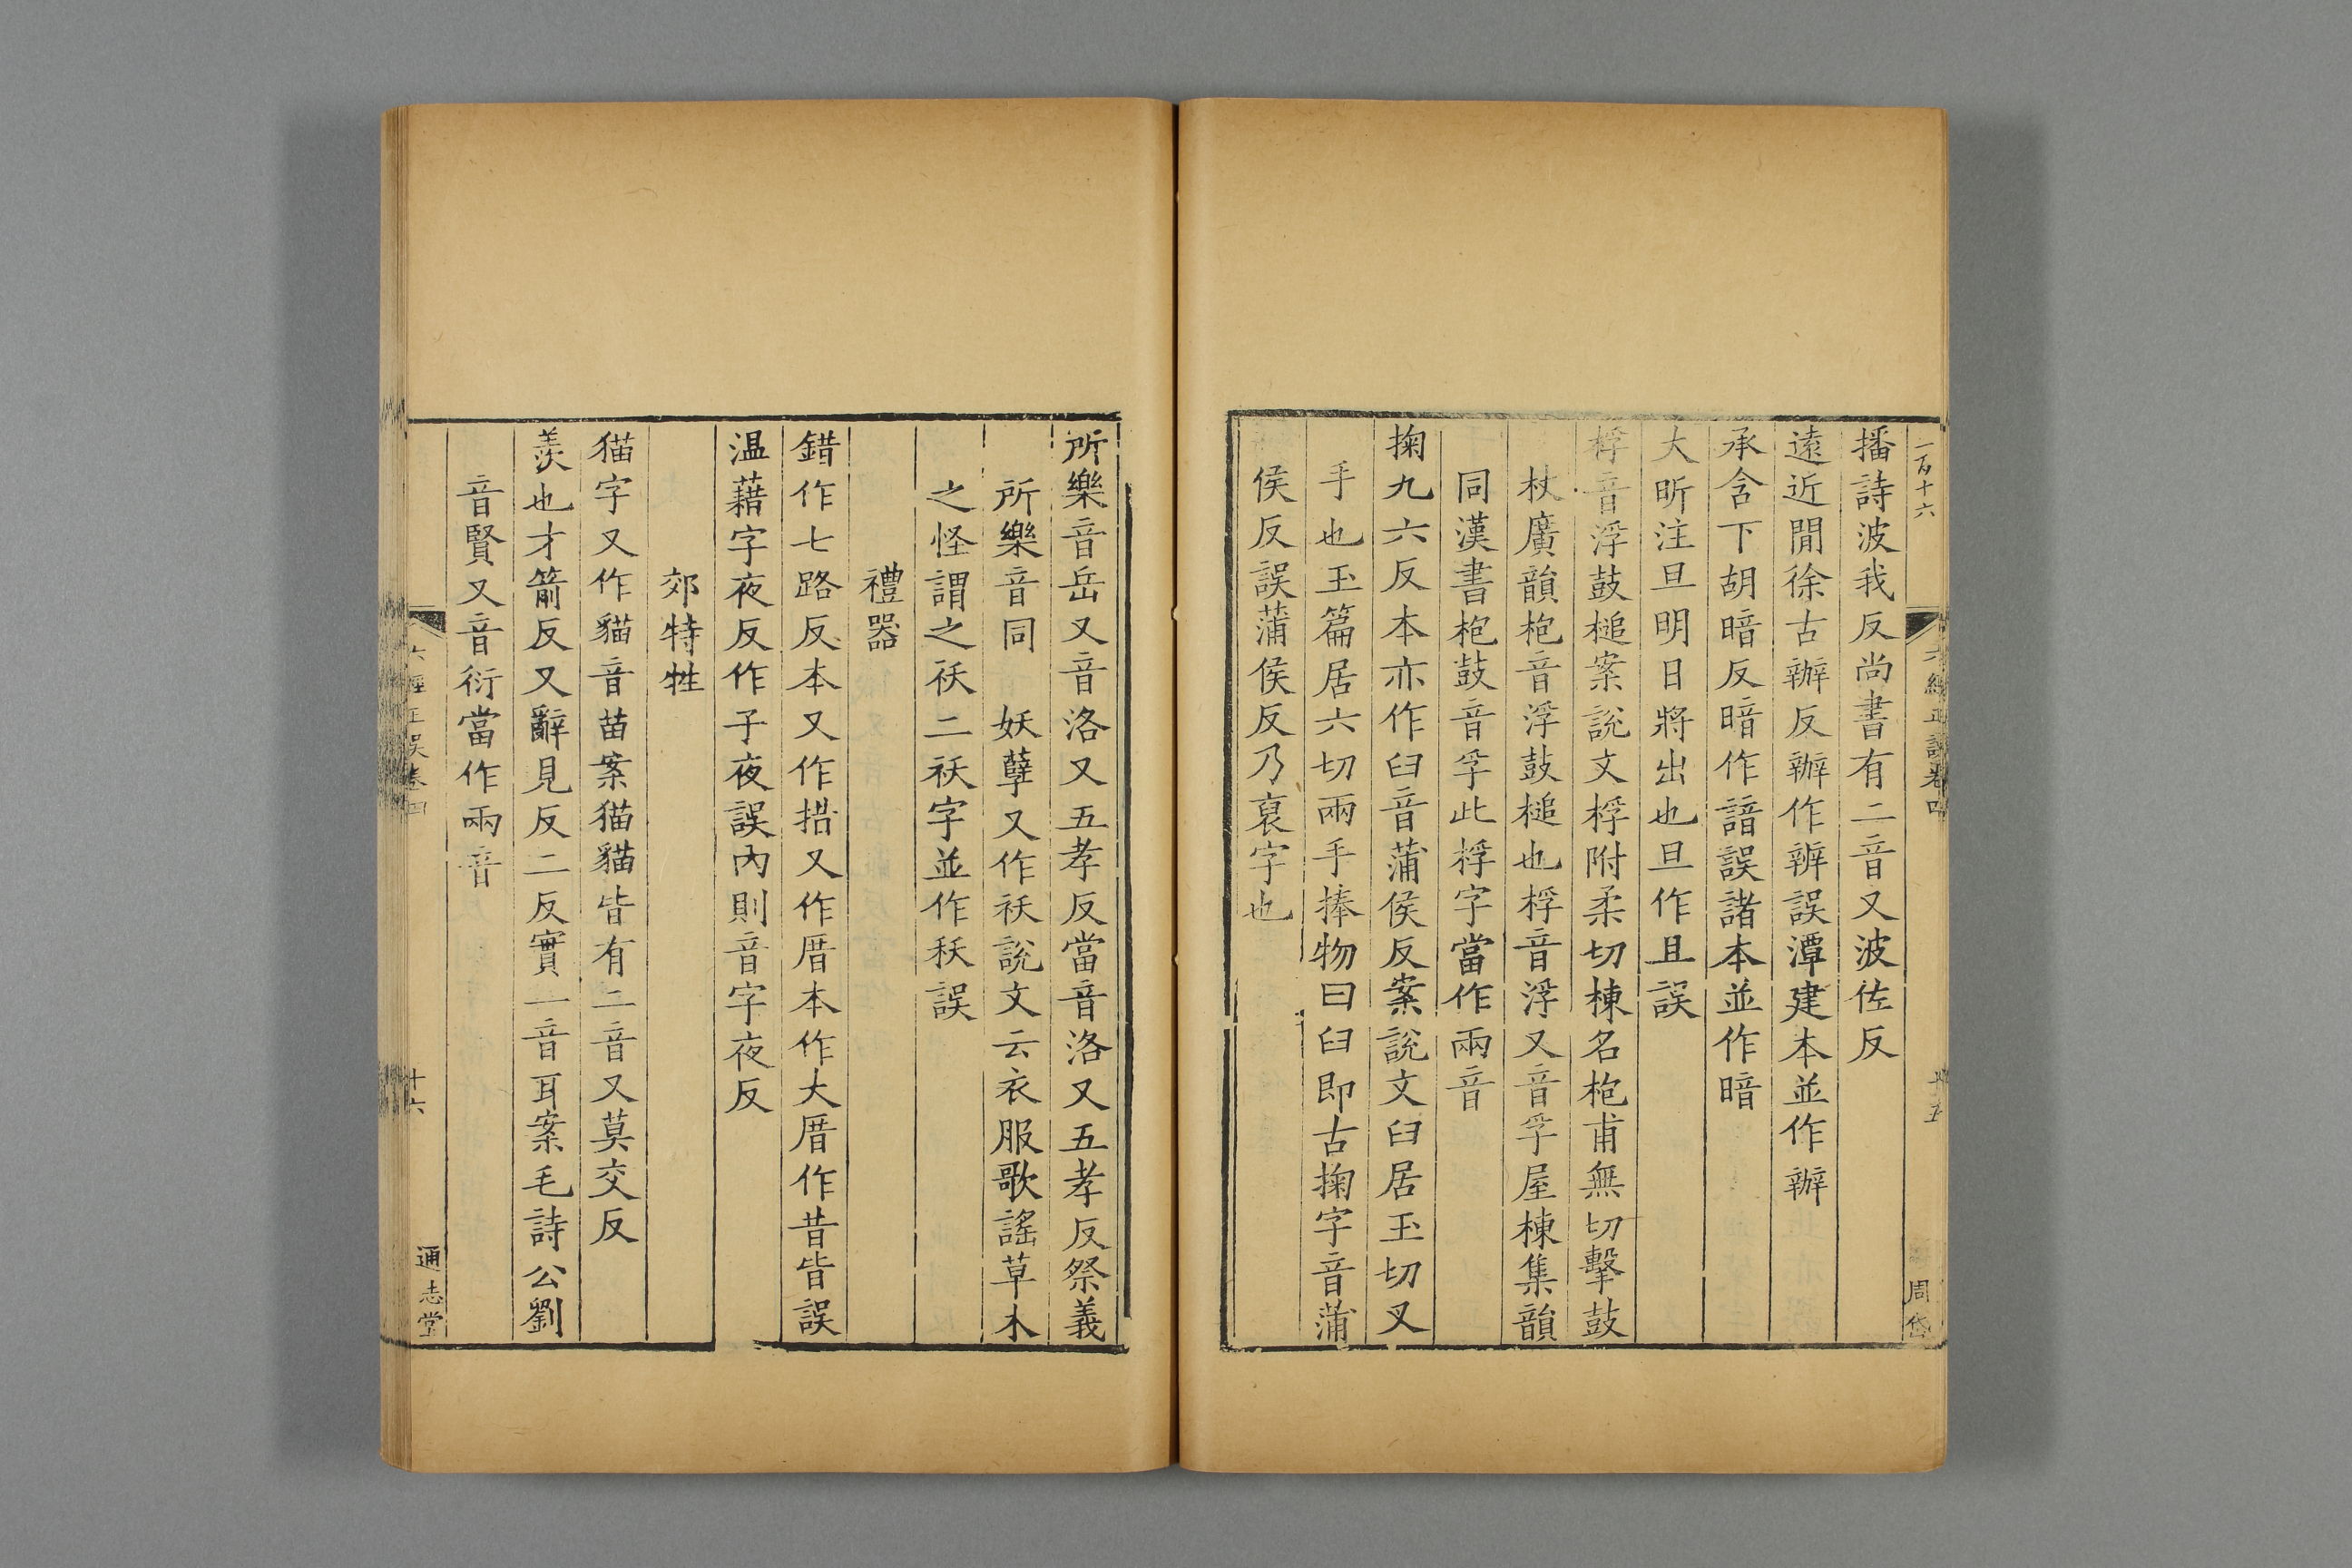 一百十六
六經正誤卷四
十五
周岱
播詩波我反尚書有二音又波佐反
遠近閒徐古辦反辦作辨誤潭建本並作辦
承含下胡暗反暗作諳誤諸本並作暗
大昕注旦明日將出也旦作且誤
桴音浮鼓槌案說文桴附柔切棟名枹甫無切擊鼓
杖廣韻枹音浮鼓槌也桴音浮又音孚屋棟集韻
同漢書枹鼓音孚此桴字當作兩音
掬九六反本亦作臼音蒲侯反案說文臼居玉切叉
手也玉篇居六切兩手捧物曰臼即古掬字音蒲
侯反誤蒲侯反乃裒字也
所樂音岳又音洛又五孝反當音洛又五孝反祭義
所樂音同 妖孽又作祅說文云衣服歌謠草木
之怪謂之祅二祅字並作秗誤
禮器
錯作七路反本又作措又作厝本作大厝作昔皆誤
温藉字夜反作子夜誤內則音字夜反
郊特牲
猫字又作貓音苗案猫貓皆有二音又莫交反
羨也才箭反又辭見反二反實一音耳案毛詩公劉
音賢又音衍當作兩音
六經正誤卷四
十六
通志堂